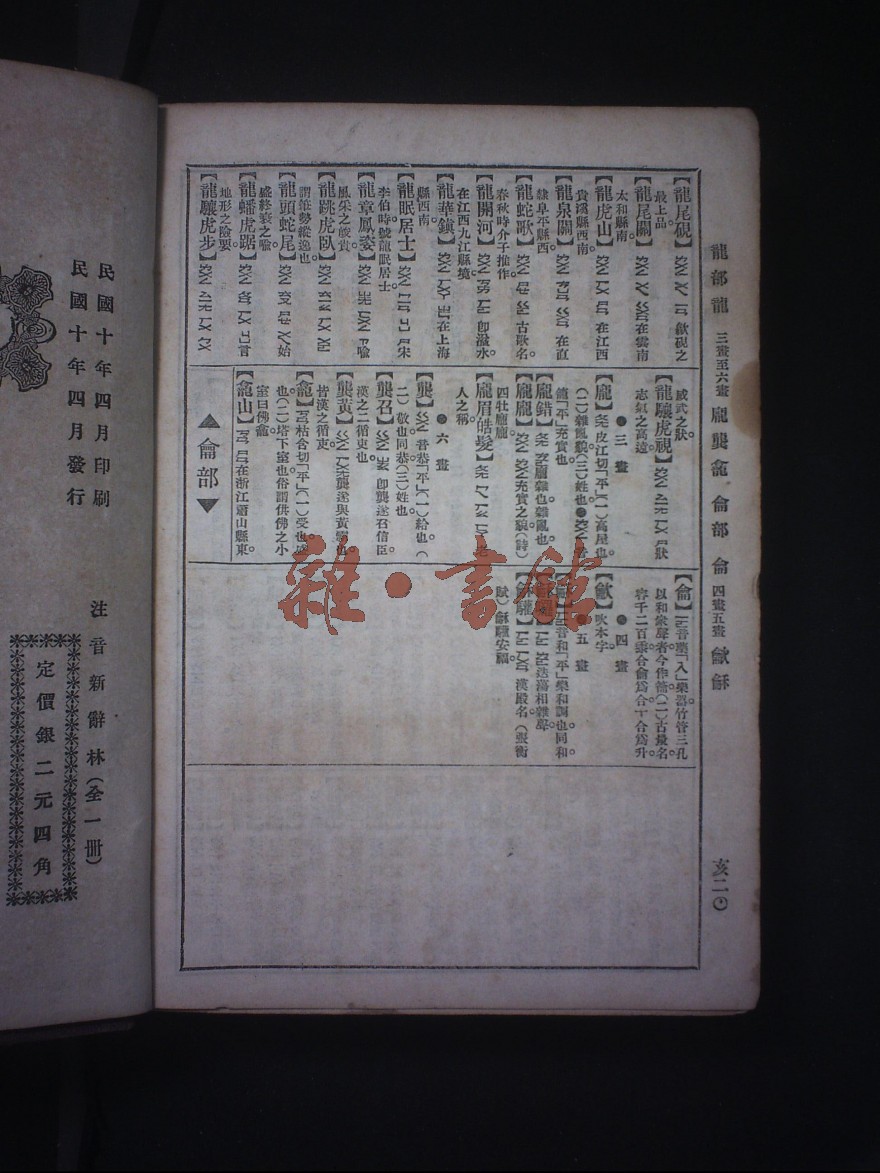 龍部龍 三畫至六畫 龐龔龕 龠部 龠 四畫五畫 龡龢
亥二〇
【龍尾硯】歙硯之
最上品。
【龍尾關】在雲南
太和縣南。
【龍虎山】在江西
貴溪縣西南。
【龍泉關】在直
隸阜平縣西。
【龍蛇歌】古歌名。
春秋時介子推作。
【龍開河】卽湓水。
在江西九江縣境。
【龍華鎮】在上海
縣西南。
【龍眠居士】宋
李伯時號龍眠居士。
【龍章鳳姿】喻
風采之
【龍跳虎臥】
謂筆勢縱逸也。
【龍頭蛇尾】始
盛終衰之喻。
【龍蟠虎踞】言
地形之險要。
【龍驤虎步】
威武之狀。
【龍驤虎視】狀
志氣之高遠。
●三畫
【龐】皮江切「平」(一)高屋也。
(二)雜亂貌。(三)姓也。●
籠「平」充實也。
【龐錯】雜也。
【龐龐】充實之貌。(詩)
四牡龐龐。
【龐眉皓髮】老
人之稱。
●六畫
【龔】音恭「平」(一)給也。(
二)敬也。同恭。(三)姓也。
【龔召】卽龔遂召信臣。
漢之二循吏也。
【龔黃】龔遂與黃霸也。
皆漢之循吏。
【龕】枯含切「平」(一)受也。盛
也。(二)塔下室也。俗謂供佛之小
室曰佛龕。
【龕山】在浙江蕭山縣東。
▲龠部▼
【龠】音藥「入」樂器。竹管三孔。
以和衆聲者。今作籥。(二)古量名。
容千二百黍。合龠爲合。十合爲升。
●四畫
【龡】吹本字。
●五畫
音和「平」樂和調也。同和。
相雜聲。
漢殿名。(張衡
賦)龢驩安福。
民國十年四月印刷
民國十年四月發行
注音新辭林(全一冊)
定價銀二元四角
雜·書館